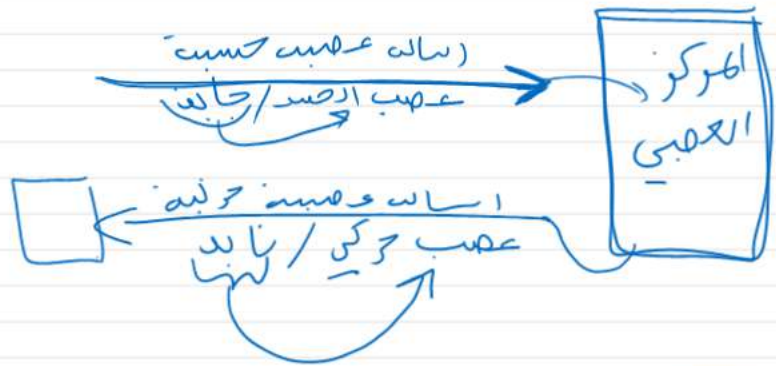 رسالة عصبية حسية
عصب الحس / جابذ
المركز
العصبي
رسالة عصبية حركية
عصب حركي / نابذ